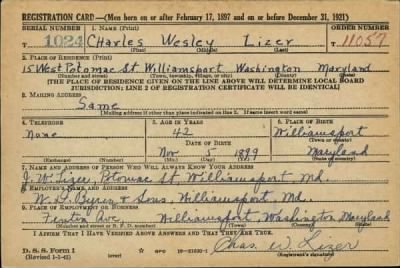 REGISTRATION CARD—(Men born on or after February 17, 1897 and on or before December 31, 1921)
SERIAL NUMBER 1. NAME (Print) ORDER NUMBER
T 1024 Charles Wesley Lizer T 11057
(First) (Middle) (Last)
2. PLACE OF RESIDENCE (Print)
15 West Potomac St. Williamsport Washington Maryland
(Number and street) (Town, township, village, or city) (County) (State)
[THE PLACE OF RESIDENCE GIVEN ON THE LINE ABOVE WILL DETERMINE LOCAL BOARD
JURISDICTION; LINE 2 OF REGISTRATION CERTIFICATE WILL BE IDENTICAL]
3. MAILING ADDRESS
Same
[Mailing address if other than place indicated on line 2. If same insert word same]
4. TELEPHONE 5. AGE IN YEARS 6. PLACE OF BIRTH
None 42 Williamsport
DATE OF BIRTH (Town or county)
Nov 5 1899 Maryland
(Exchange) (Number) (Mo.) (Day) (Yr.) (State or country)
7. NAME AND ADDRESS OF PERSON WHO WILL ALWAYS KNOW YOUR ADDRESS
Lizer, Potomac St, Williamsport, Md.
8. EMPLOYER'S NAME AND ADDRESS
W. D. Byron & Sons, Williamsport, Md.
9. PLACE OF EMPLOYMENT OR BUSINESS
Ave, Williamsport, Washington, Maryland
(Number and street or R. F. D. number) (Town) (County) (State)
I AFFIRM THAT I HAVE VERIFIED ABOVE ANSWERS AND THAT THEY ARE TRUE.
D. S. S. Form 1
(Revised 1-1-42) (over) Chas. W. Lizer
(Registrant's signature)